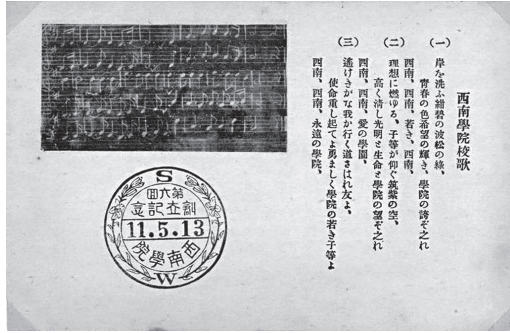 西南學院校歌
(一)
岸を洗ふ紺碧の波松の綠、
青春の色希望の輝き、學院の誇ぞ之れ
西南、西南、若き、西南、
(二)
理想に燃ゆる、子等が仰ぐ筑紫の空、
高く清し光明と生命と學院の望ぞ之れ
西南、西南、愛の學園、
(三)
遙けきかな我か行く道さはれ友よ、
使命重し起てよ勇ましく學院の若き子等よ
西南、西南、永遠の學院、
S
第六回
創立記念
11.5.13
西南學院
W